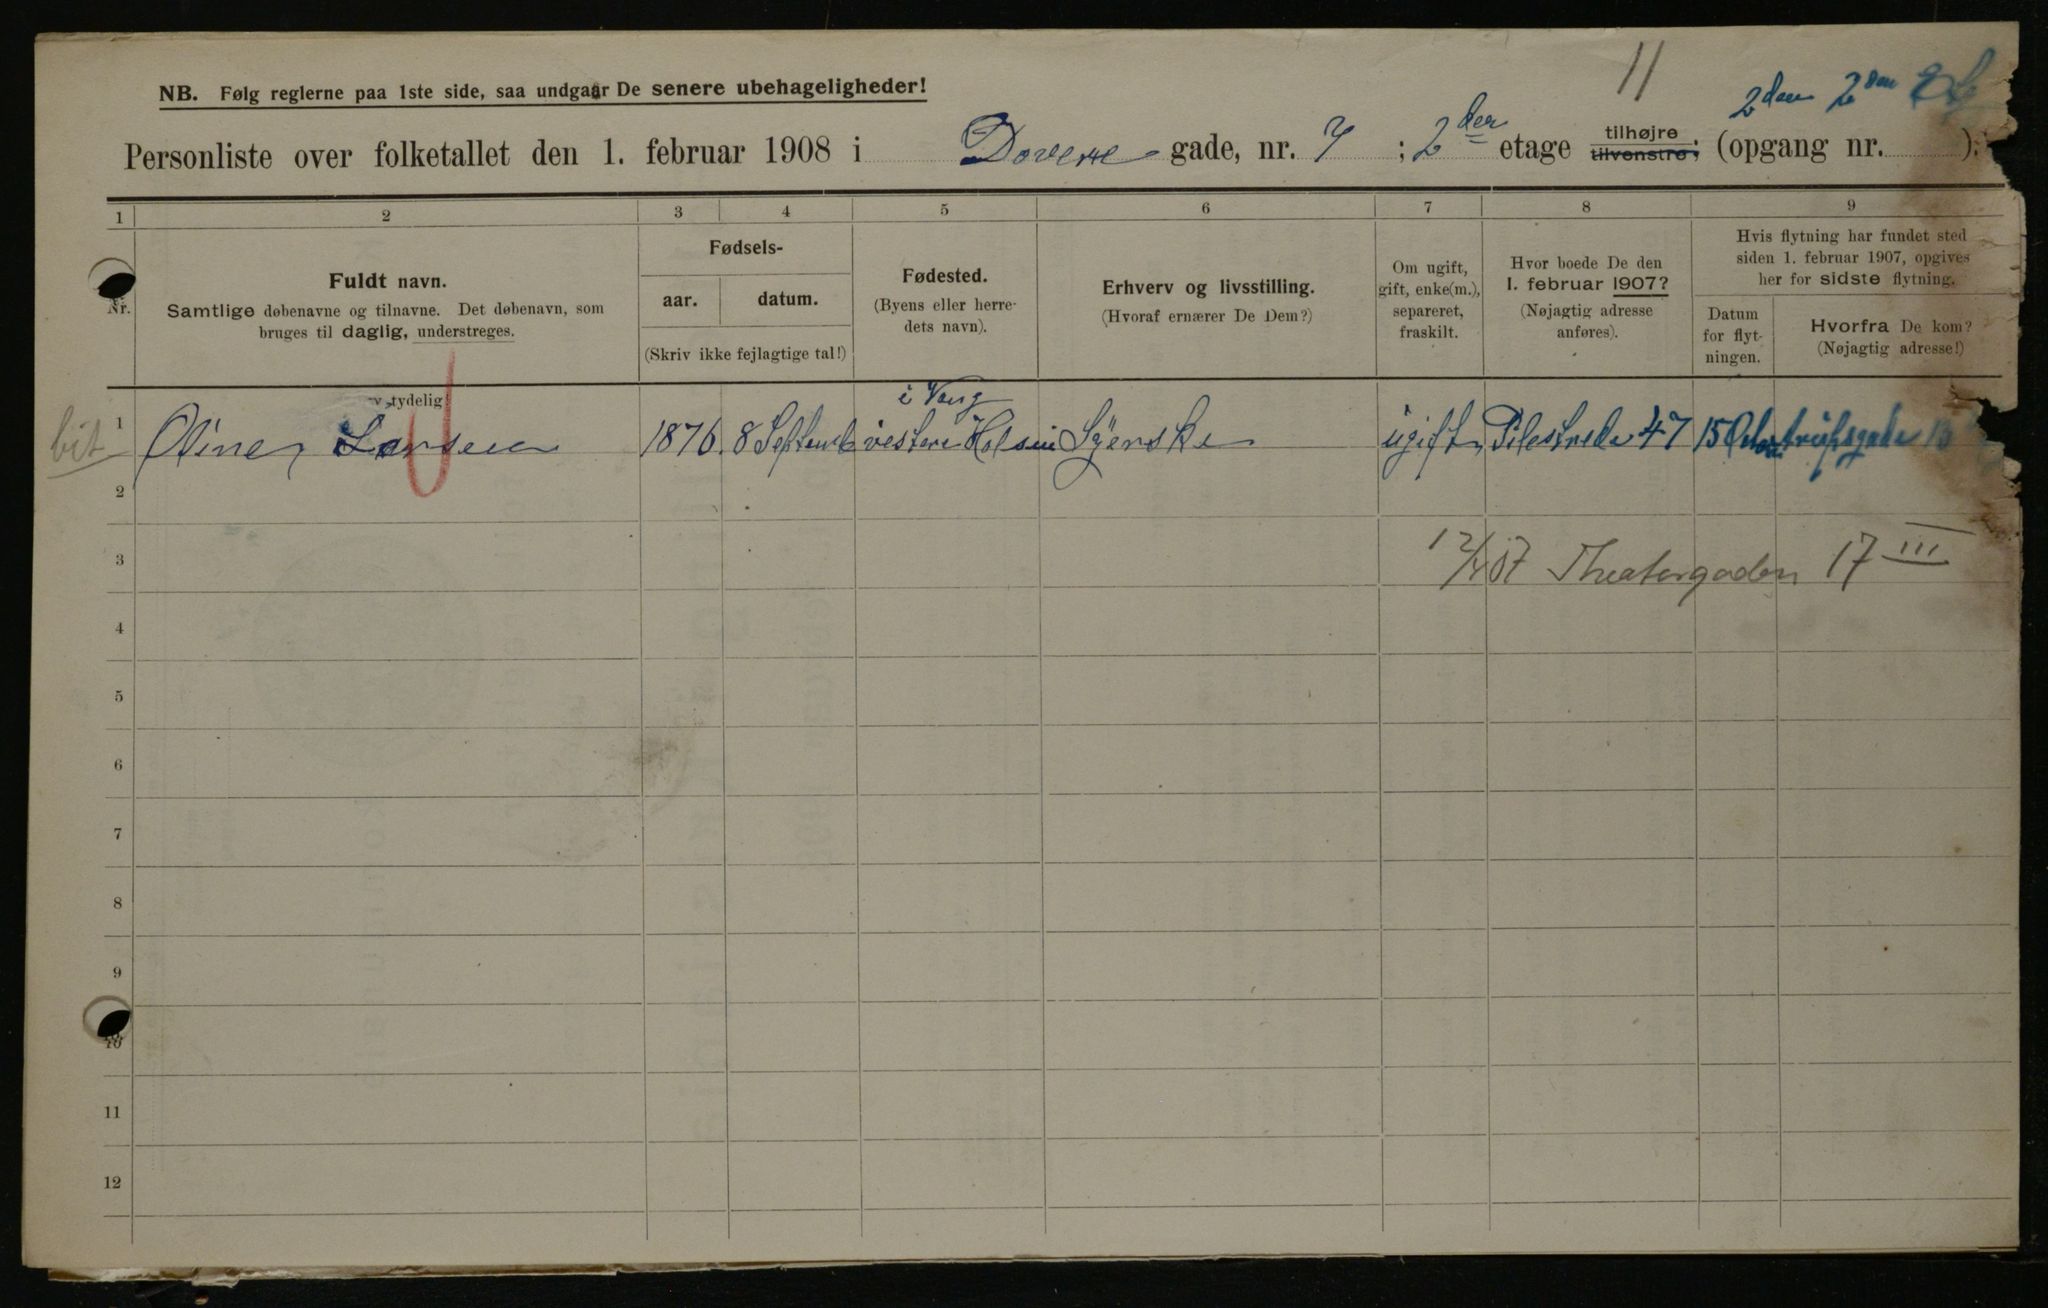 11
NB. Følg reglerne paa 1ste side, saa undgaar De senere ubehageligheder!
2den 2den
Personliste over folketallet den 1. februar 1908 i Dovere gade, nr. 7 ; 2der etage tilhøjre tilvenstre; (opgang nr. ).
1 2 3 4 5 6 7 8 9
Nr.
Fuldt navn.
Samtlige døbenavne og tilnavne. Det døbenavn, som
bruges til daglig, understreges.
Fødsels-
aar. datum.
(Skriv ikke fejlagtige tal!)
Fødested.
(Byens eller herre-
dets navn).
Erhverv og livsstilling.
(Hvoraf ernærer De Dem?)
Om ugift,
gift, enke(m.),
separeret,
fraskilt.
Hvor boede De den
1. februar 1907?
(Nøjagtig adresse
anføres).
Hvis flytning har fundet sted
siden 1. februar 1907, opgives
her for sidste flytning.
Datum
for flyt-
ningen.
Hvorfra De kom?
(Nøjagtig adresse!)
tydelig
i Vang
bit 1 Oline Larsen 1876 8 Septemb vestere Syerske ugift Pilestrede 47 15
2
3 12/ 07 Theatergaden 17 III
4
5
6
7
8
9
10
11
12